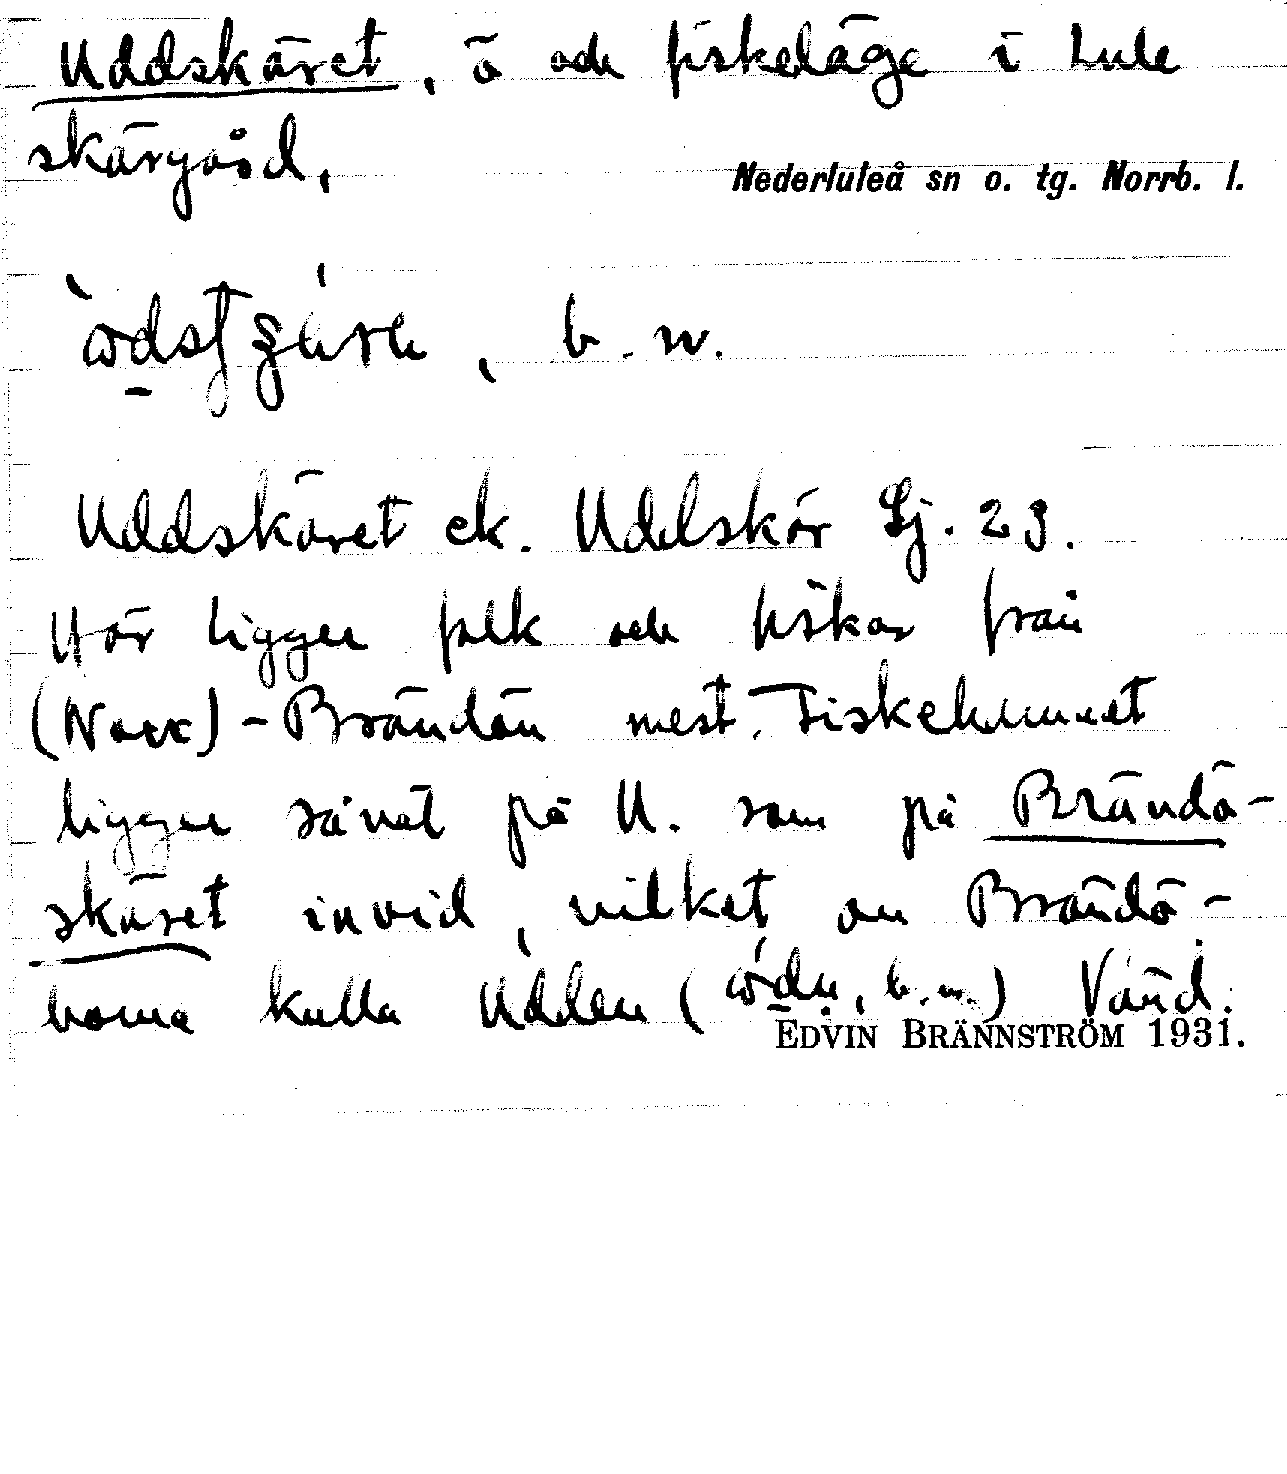 Uddskäret, ö och fiskeläge i Lule
skärgård,
Nederluleå sn o. tg. Norrb. l.
b. n.
Uddskäret ek. Uddskär Sj. 23.
Här ligger folk och fiskar från
(Norr)-Brändön mest. Fiskehamnet
ligger såväl på U. som på Brändö-
skäret invid, vilket av Brändö-
borna kallas Udden (b. n.)
EDVIN BRÄNNSTRÖM 1931.